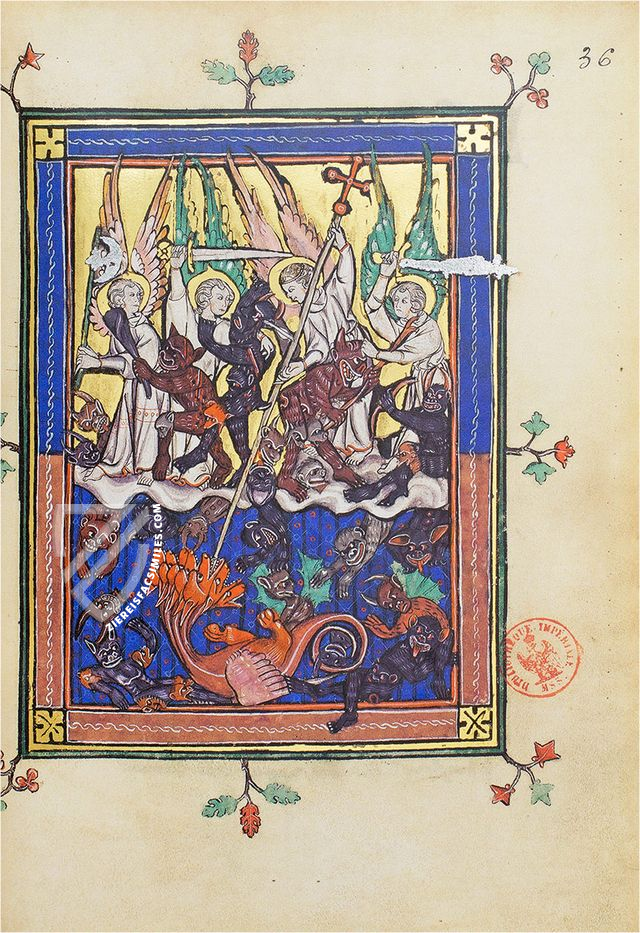 36
ZIEREISFACSIMILES.COM
BIBLIOTHEQUE IMPERIALE
MSS